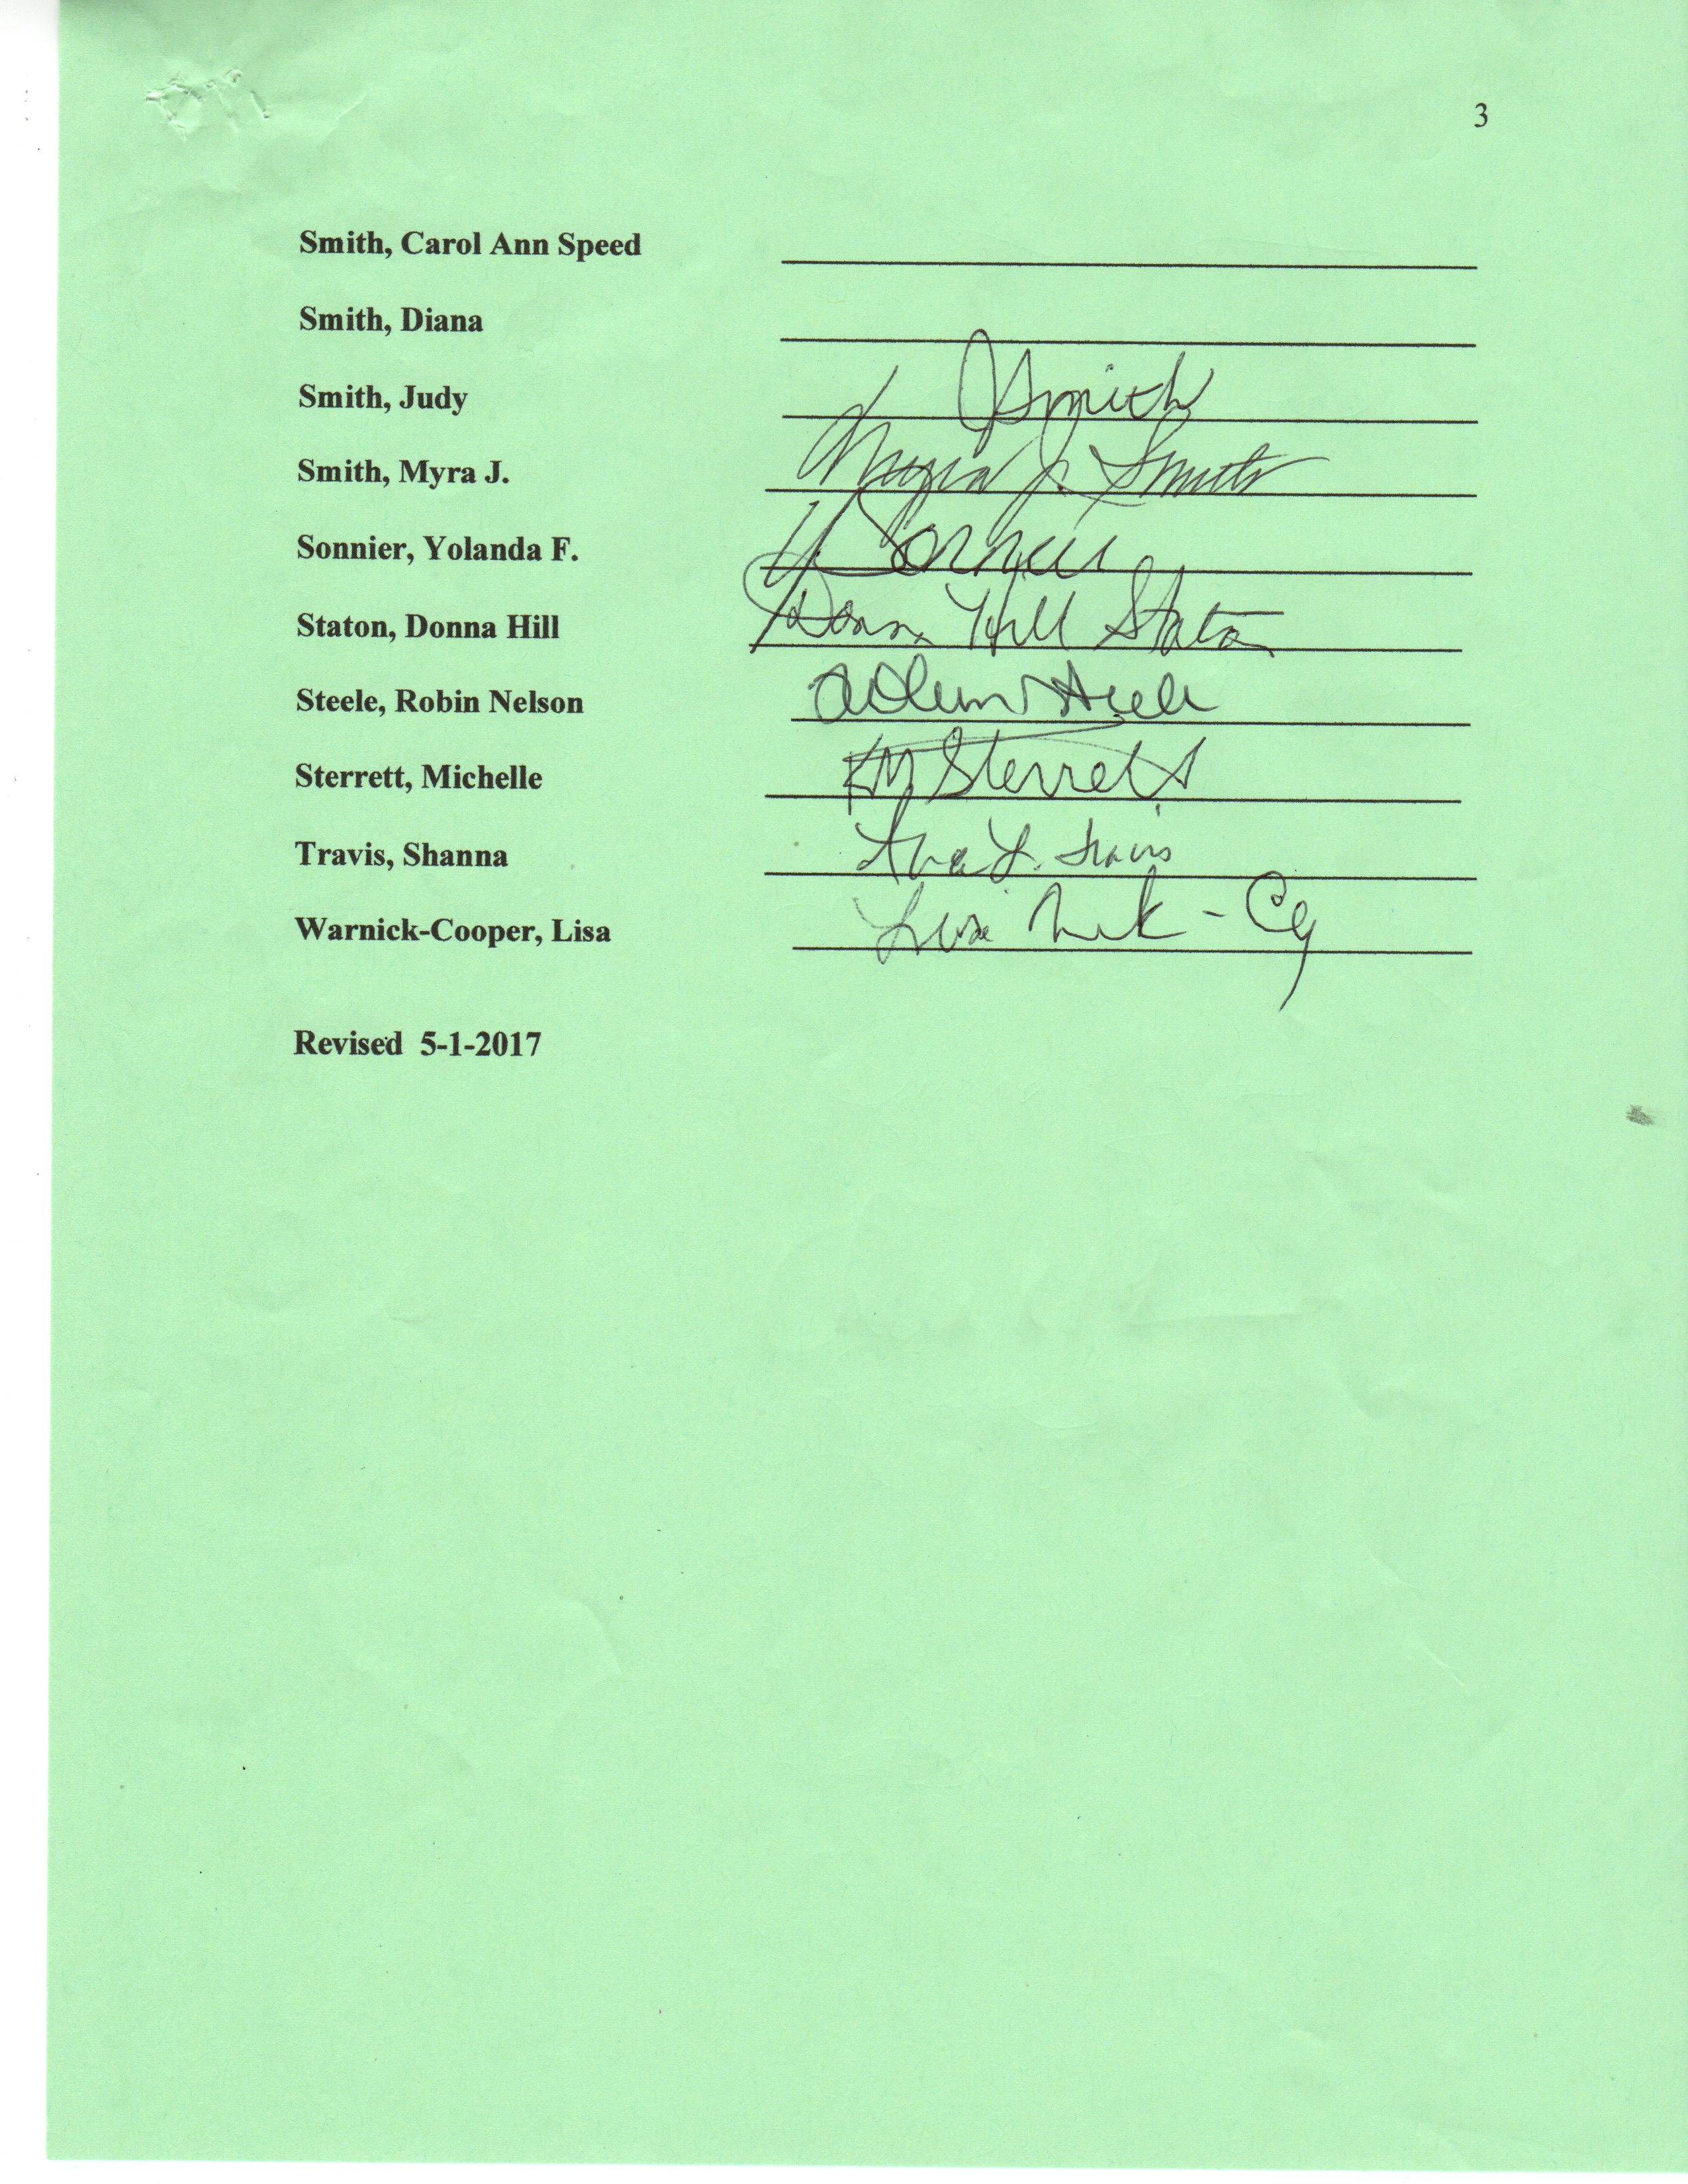 3
Smith, Carol Ann Speed
Smith, Diana
Smith, Judy JSmith
Smith, Myra J. Myra J. Smith
Sonnier, Yolanda F. Y. Sonnier
Staton, Donna Hill Donna Hill Staton
Steele, Robin Nelson Steele
Sterrett, Michelle KM Sterrett
Travis, Shanna Travis
Warnick-Cooper, Lisa Lisa
Revised 5-1-2017